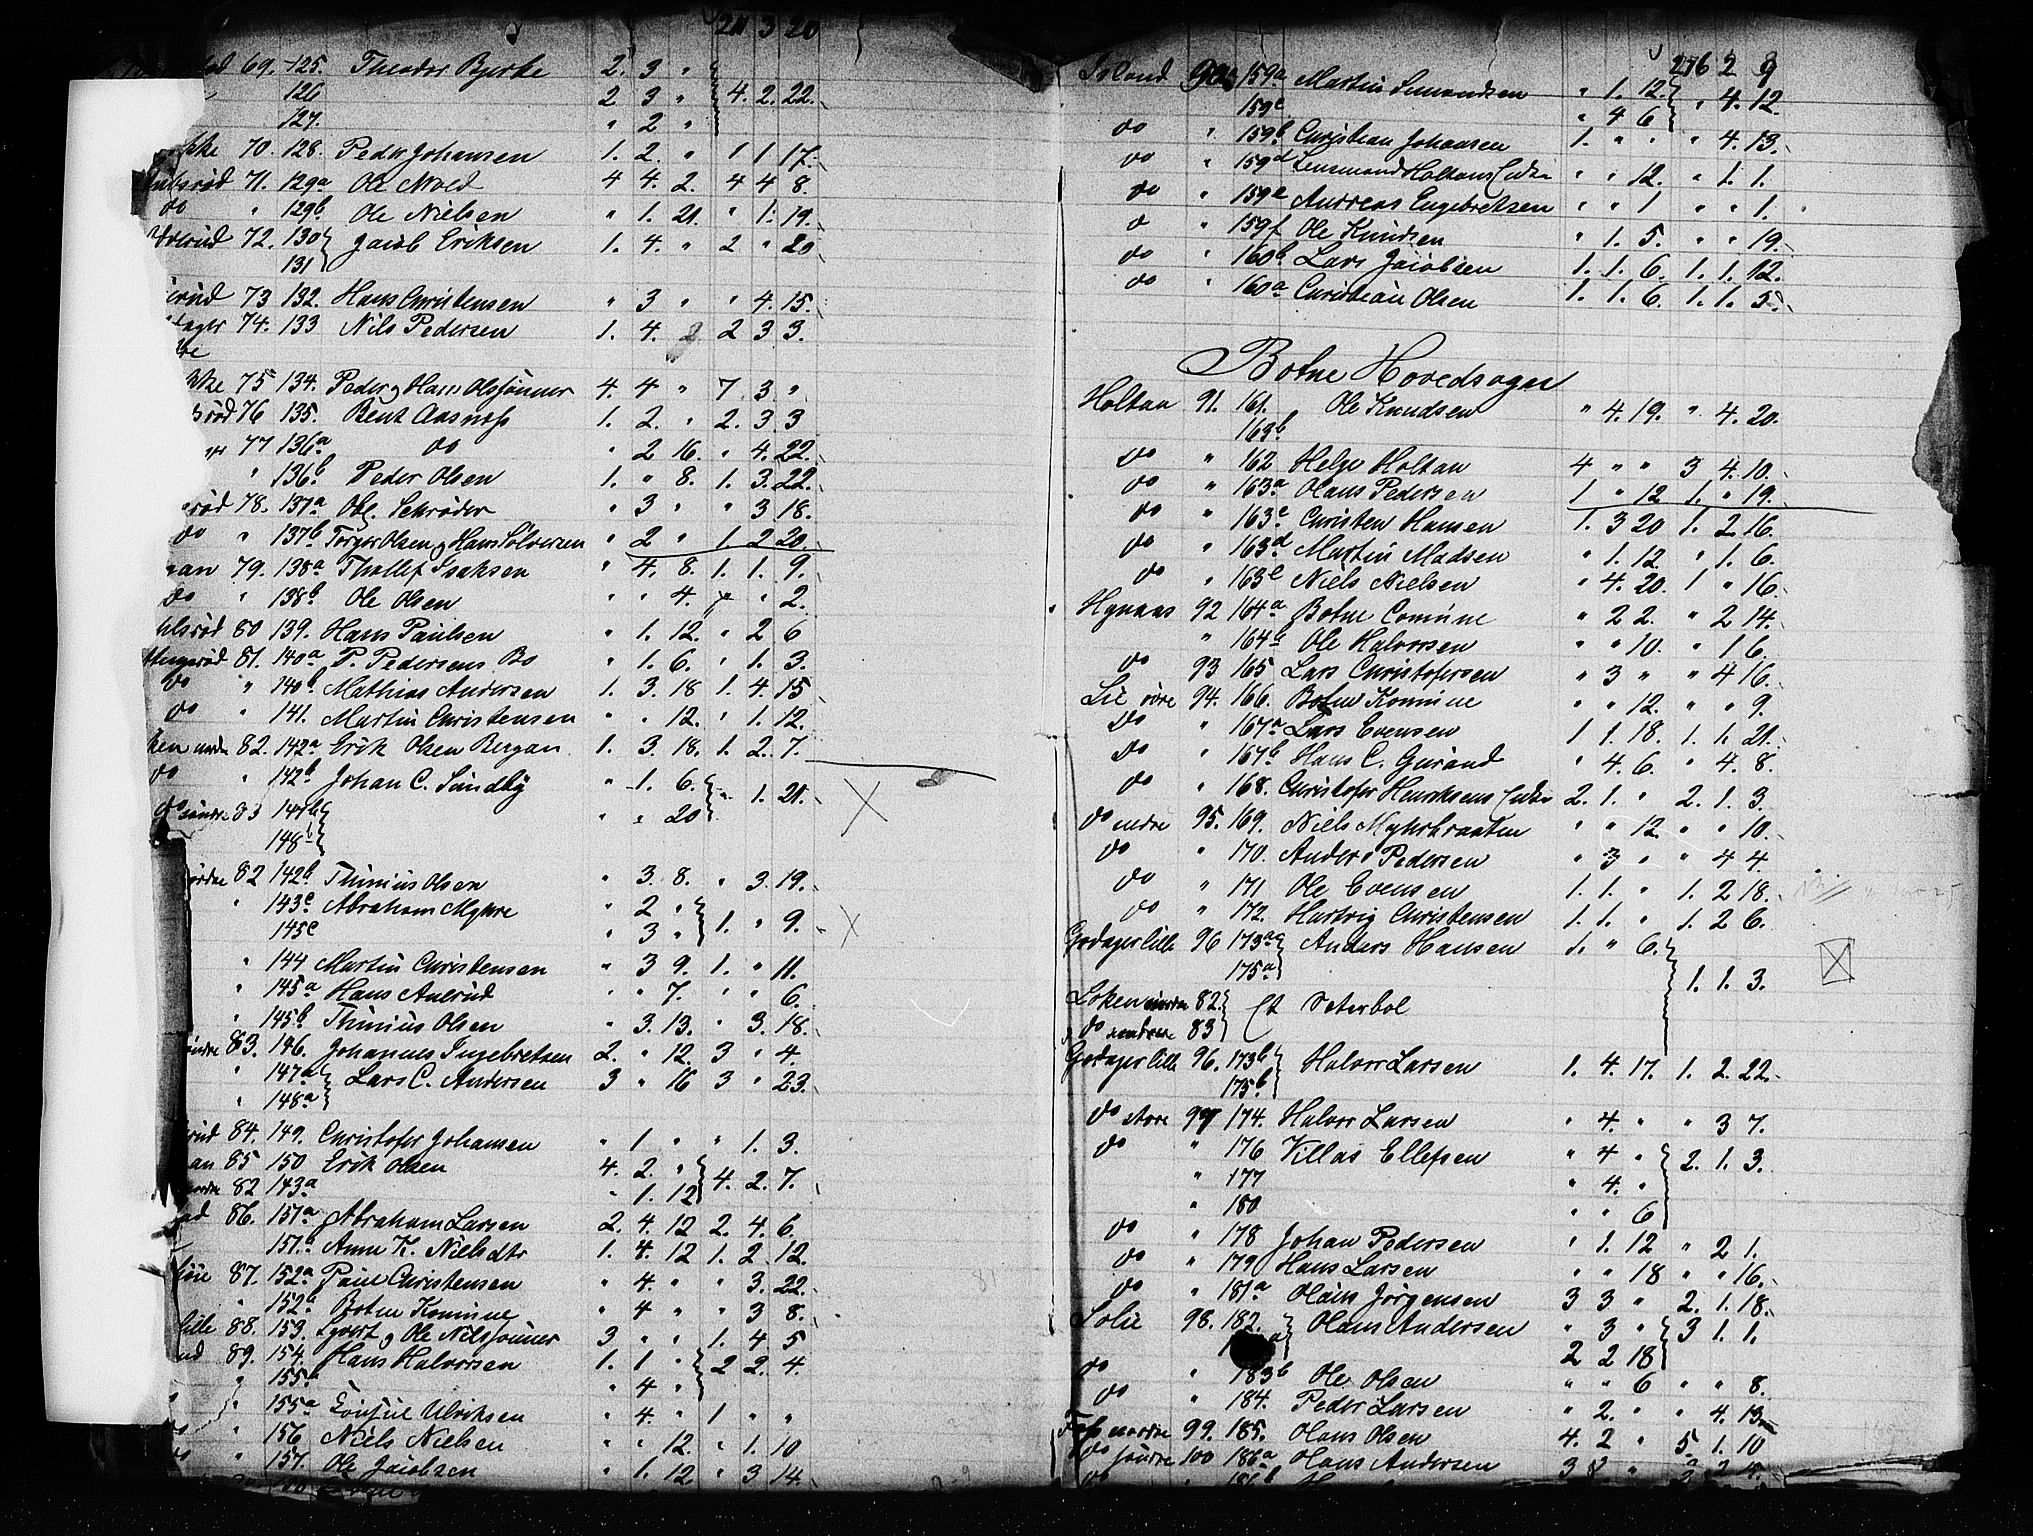 211 3 20
69. 125. Theodor Bjerke 2. 3 "
126 2 3 " 4. 2. 22.
127. " 2 "
70. 128. Peder Johansen 1. 2. " 1 1 17.
71. 129a Ole Moed 4 4. 2. 4 4 8.
do " 129b Ole Nielsen " 1. 21. " 1. 19.
72. 130 Jacob Eriksen 1. 4. " 2 " 20
131
73 132. Hans Christensen " 3 " " 4. 15.
74. 133 Nils Pedersen 1. 4. 2 2 3 3.
75 134. Peder og Hans Olssønner 4. 4 " 7. 3. "
76 135. Bent Aasness 1. 2. " 2. 3. 3
77 136a do " 2 16. " 4. 22.
" 136b Peder Olsen 1. " 8. 1. 3. 22.
78. 137a Ole Schrøder " 3 " " 3 18.
do " 137b Torger Olsen og Hans Solversen " 2 " 1. 2 20.
79. 138a Thollef Isaksen " 4. 8. 1. 1. 9.
do " 138b Ole Olsen " " 4. " " 2.
80 139. Hans Paulsen " 1. 12. " 2 6
81. 140a P. Pedersens Bo " 1. 6. " 1. 3.
do " 140b Mathias Andersen 1. 3. 18 1. 4. 15
do " 141. Martin Christensen " " 12. " 1. 12.
82. 142a Erik Olsen Bergan 1. 3. 18. 1. 2. 7.
do " 142b Johan C. Sundby " 1. 6. " 1. 21.
do søndre 83 147b " " 20
148b
82 142b Thinius Olsen " 3. 8. " 3. 19.
" 143c Abraham Myhre " 2 " 1. " 9.
145c " 3 "
" 144 Martin Christensen " 3 9. 1. " 11.
" 145a Hans Aulerud " " 7. " " 6.
" 145b Thinius Olsen " 3. 13. " 3. 18.
83. 146. Johannes Ingebretsen 2. " 12. 3 " 4.
" 147a Lars C. Andersen 3 " 16 3 " 23.
" 148a
84. 149. Christofer Johansen " 1 " " 1. 3.
85 150 Erik Olsen 4. 2. " 4. 2. 7.
82 143a " 1. 12
86. 151a Abraham Larsen 2. 4. 12 2. 4. 6.
151b Anne K. Nielsdtr 1. 4. 12 1. 2 12.
87. 152a Paul Christensen " 4. " " 3. 22.
" 152b Botne Komune " 4 " " 3 8.
lille 88. 153. Syvert og Ole Nilssønner 3 " " 1. 4 5
89. 154. Hans Halvorsen 1. 1 " 2 2. 4.
" 155 " 4 "
" 155a Consul Ulriksen " 4. " 1 " "
" 156 Niels Nielsen " " 12. " 1. 10
" 157. Ole Jacobsen " 1. 12 " 3 14.
216 2 8
Island 90. 159a Martin Simondsen " 1. 12. " 4. 12.
159c " 4 6
do " 159b Christian Johansen 1. " " " 4. 13.
do " 159d Lensmand Holtans Enke " " 12. " 1. 1.
do " 159e Andreas Engebretsen " " 1 " " 1.
do " 159f Ole Knudsen " 1. 5. " " 19.
do " 160b Lars Jacobsen 1. 1. 6. 1. 1. 12.
do " 160a Christian Olsen 1. 1. 6. 1. 1. 3.
Botne Hovedsogn
Holtan 91. 161. Ole Knudsen " 4. 19. " 4. 20.
163b
do " 162 Helge Holtan 4 " " 3 4. 10.
do " 163a Hans Pedersen 1 " 12 1. " 19.
do " 163c Christen Hansen 1. 3 20 1. 2 16.
do " 163d Martin Madsen " 1. 12. " 1. 6.
do " 163e Niels Nielsen " 4. 20. 1 " 16.
Hynaas 92 164a Botne Comune " 2 2. " 2 14.
" 164b Ole Halvorsen " " 10. " 1 6.
do 93 165 Lars Christofersen " 3 " " 4 16.
Lie øvre 94. 166. Botne Komune " " 12. " " 9.
do " 167a Lars Evensen 1 1. 18. 1. 1. 21.
do " 167b Hans C. Gurand " 4. 6. " 4. 8.
do " 168. Christofer Henriksens Enke 2. 1. " 2. 1. 3.
do nedre 95. 169. Niels Myhrbraaten " " 12. " " 10.
do " 170. Anders Pedersen " 3 " " 4 4.
do " 171. Ole Evensen 1. 1. " 1. 2 18.
do " 172. Hartvig Christensen 1. 1. " 1. 2 6.
Godager lille 96 173a Anders Hansen 1. " 6. 1. 1. 3.
175a
Løken nordre 82. Et Sæterbol
do søndre 83
Godager lille 96. 173b Halvor Larsen 1. 4. 17. 1. 2. 22.
175b
do store 97 174. Halvor Larsen " 4. " " 3 7.
do " 176 Villas Ellefsen " 4 " 2. 1. 3.
" 177 " 4. "
" 180 " " 6
do " 178 Johan Pedersen " 1. 12 " 2 1.
do " 179 Hans Larsen " " 18 " " 16.
do " 181a Hans Jørgensen 3 3 " 2. 1. 18.
Solie 98. 182. Hans Andersen " 3 " 3 1. 1.
2 2 18
do " 183b Ole Olsen " " 6 " " 8.
do " 184. Peder Larsen " 2. " " 4. 13.
nordre 99. 185. Hans Olsen 4. 2 " 5. 1. 10
do søndre 100 186a Hans Andersen
186b